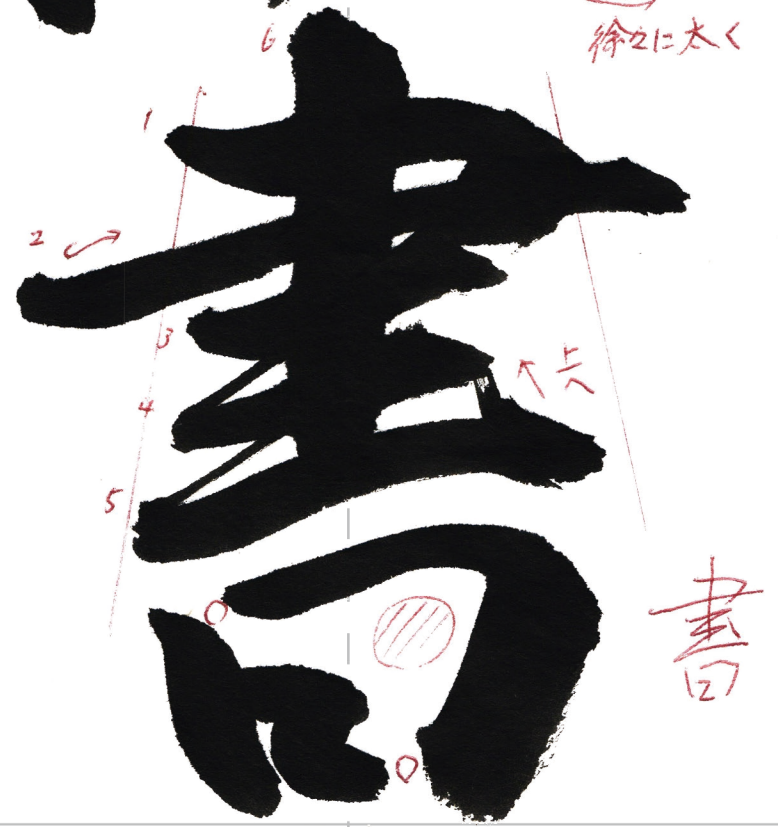 徐々に太く
6
1
2
3
4
5
書
上へ
書